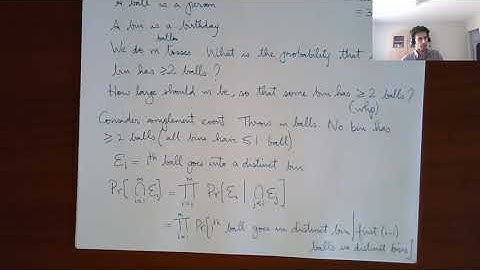 A ball is a person
A bin is a birthday
balls
We do m tosses. What is the probability that
bin has ≥2 balls?
How large should m be, so that some bin has ≥ 2 balls?
(whp)
Consider complement event. Throw m balls. No bin has
≥ 2 balls (all bins have ≤ 1 ball)
Ei = ith ball goes into a distinct bin
Pr[⋂ Ei] = ∏ Pr[Ei | ⋂ Ej]
= ∏ Pr[ith ball goes in distinct bin | first (i-1)
balls in distinct bins]